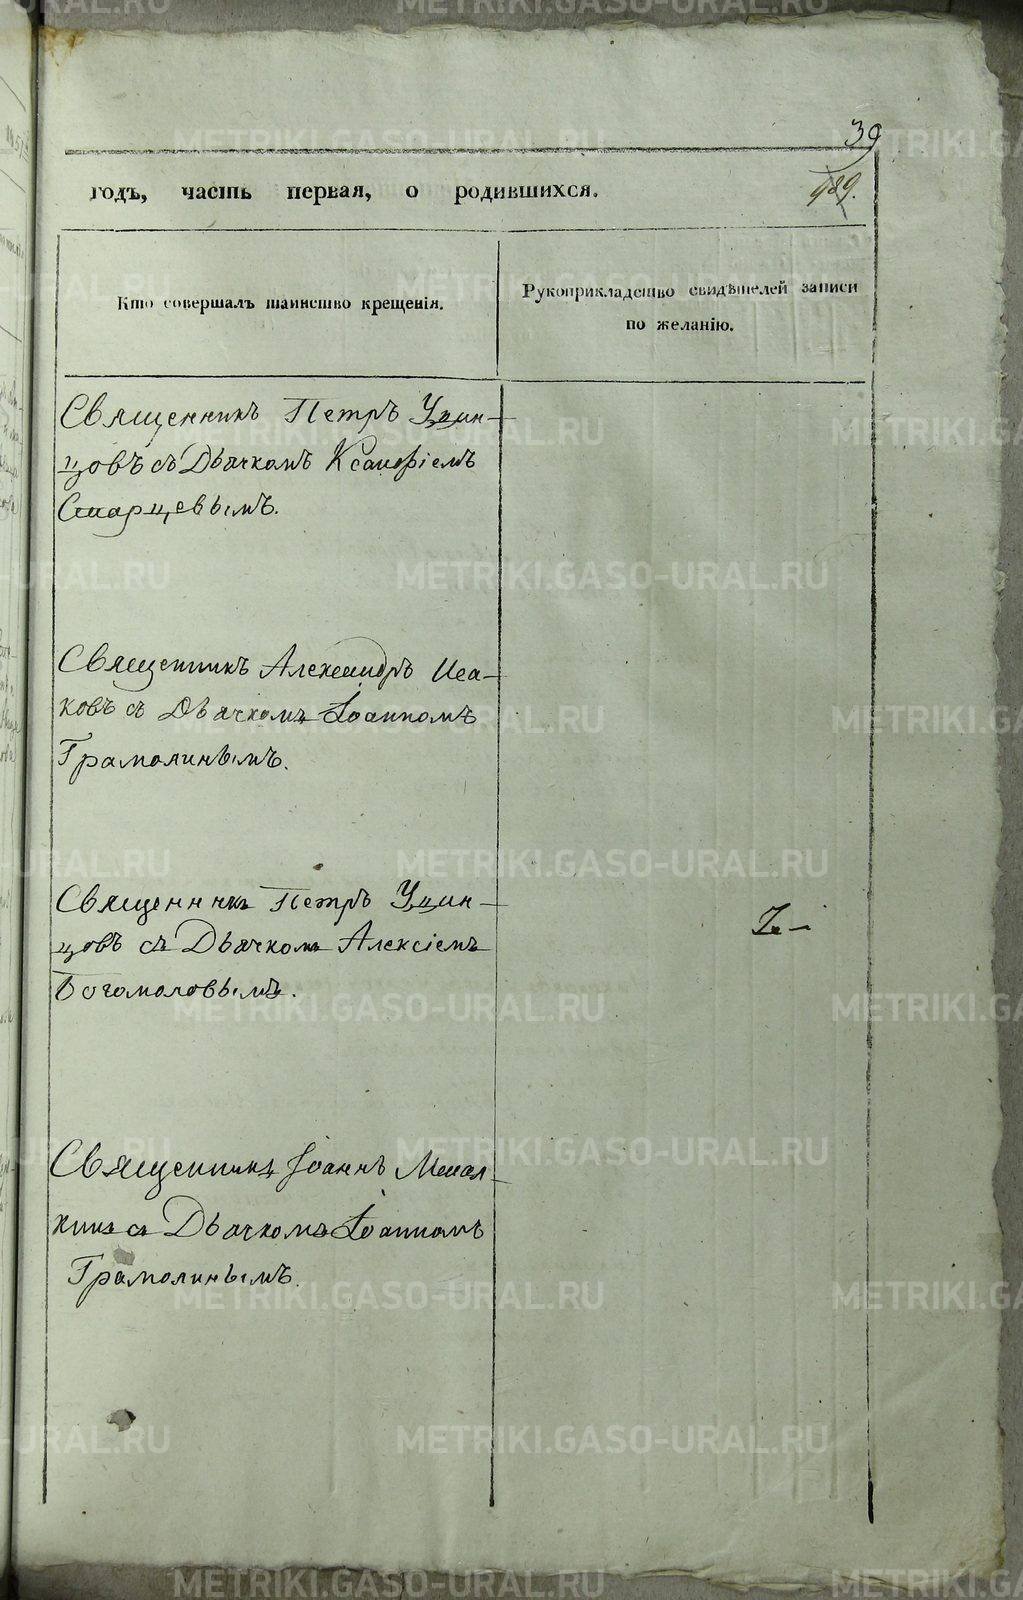 39
годъ, часть первая, о родившихся.
989.
Кто совершалъ таинство крещенія.
Рукоприкладство свидѣтелей записи
по желанію.
Священникъ Петръ Удин-
цовъ съ Дьячкомъ Ксанфіемъ
Старцевымъ.
Священникъ Александръ Иса-
ковъ съ Дьячкомъ Іоанномъ
Грамолинымъ.
Священникъ Петръ Удин-
цовъ съ Дьячкомъ Алексіемъ
Богомоловымъ.
Священникъ Іоаннъ
съ Дьячкомъ Іоанномъ
Грамолинымъ.
METRIKI.GASO-URAL.RU